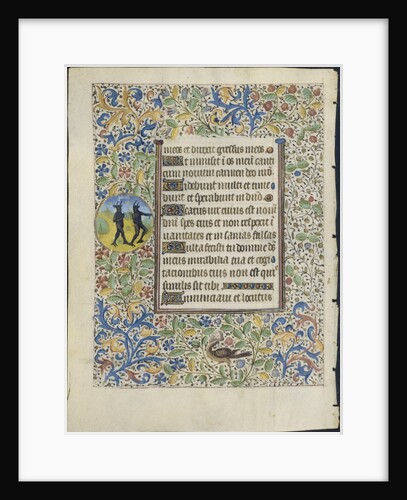 meos et direxit gressus meos
Et inmisit i os meu canti
cum novum carmen deo nr̄o
Videbunt multi et time
bunt et sperabunt in dnō
Beatus vir cuius est nom̄
dnī spes eius et non respexit ī
vanitates et in sanias falsas
Multa fecisti tu domine ds̄
meus mirabilia tua et cogi
tacionibus tuis non est qui
similis sit tibi
Annunciavi et locutus